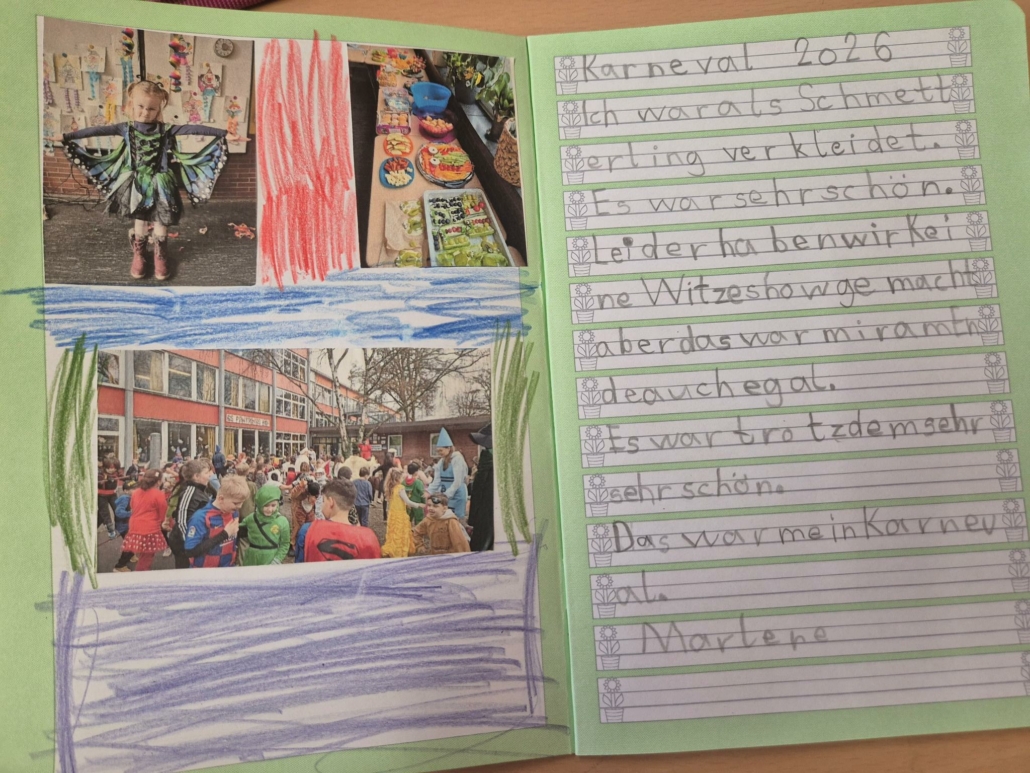 Karneval 2026
Ich war als Schmett
erling verkleidet.
Es war sehr schön.
Leider haben wir Kei
ne Witzeshow gemacht
aber das war mir am En
de auch egal.
Es war trotzdem sehr
sehr schön.
Das war mein Karnev
al.
Marlene